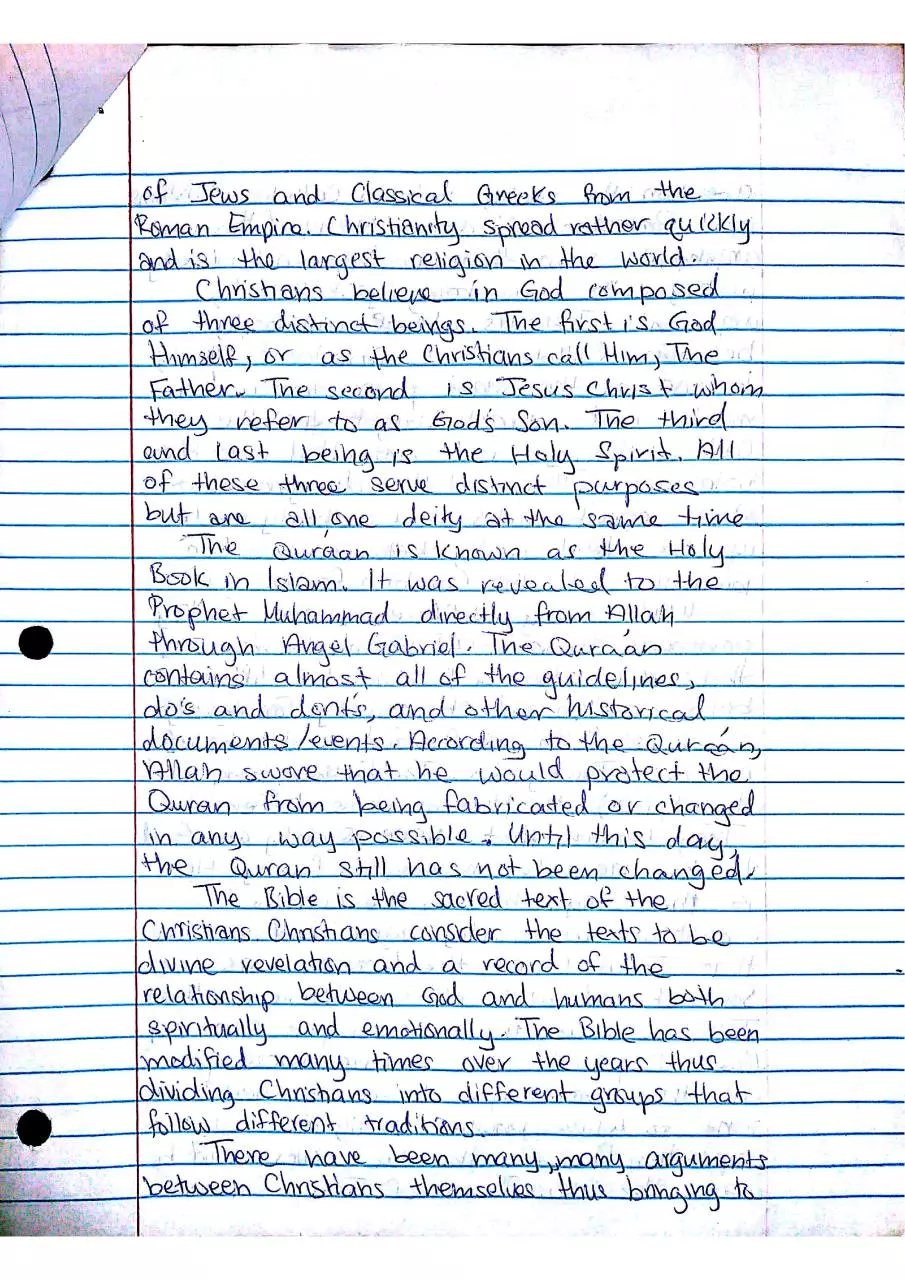 of Jews and Classical Greeks from the
Roman Empire. Christianity spread rather quickly
and is the largest religion in the world.
Christians believe in God composed
of three distinct beings. The first is God
Himself, or as the Christians call Him, The
Father. The second is Jesus Christ whom
they refer to as God's Son. The third
and last being is the Holy Spirit. All
of these three serve distinct purposes
but are all one deity at the same time
The Qura'an is known as the Holy
Book in Islam. It was revealed to the
Prophet Muhammad directly from Allah
through Angel Gabriel. The Qura'an
contains almost all of the guidelines,
do's and dont's, and other historical
documents/events. Acording to the Qura'an,
Allah swore that he would protect the
Quran from being fabricated or changed
in any way possible. Until this day,
the Quran still has not been changed.
The Bible is the sacred text of the
Christians. Christians consider the texts to be
divine revelation and a record of the
relationship between God and humans both
spiritually and emotionally. The Bible has been
modified many times over the years thus
dividing Christians into different groups that
follow different traditions.
There have been many, many arguments
between Christians themselves thus bringing to